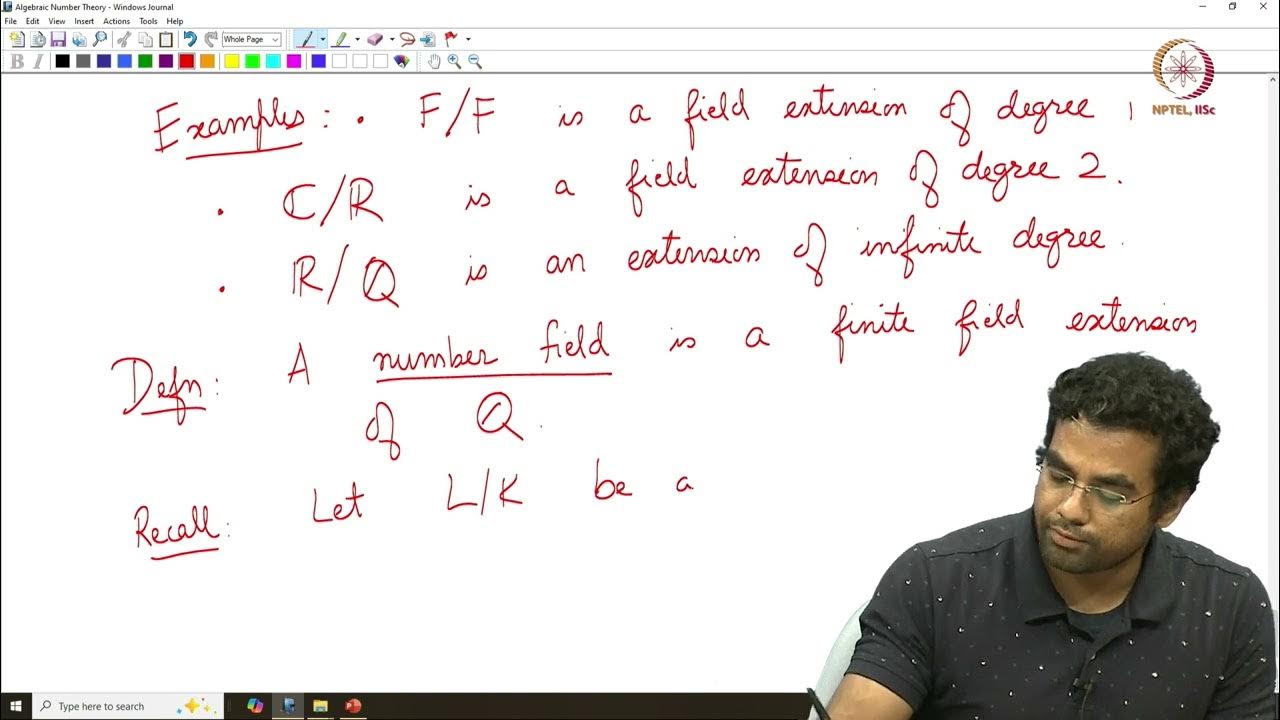 Algebraic Number Theory - Windows Journal
File Edit View Insert Actions Tools Help
Whole Page
B I
NPTEL, IISc
Examples: · F/F is a field extension of degree 1
· ℂ/ℝ is a field extension of degree 2.
· ℝ/ℚ is an extension of infinite degree.
Defn: A number field is a finite field extension
of ℚ.
Recall: Let L/K be a
Type here to search